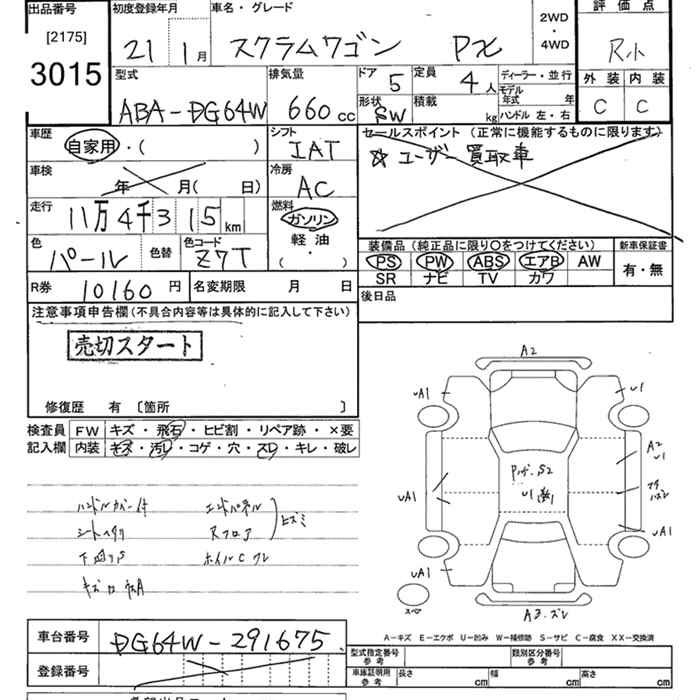 出品番号
[2175]
3015
初度登録年月
21 1月
車名・グレード
スクラムワゴン PX
2WD
・
4WD
評価点
R小
外装 内装
C C
型式
ABA-DG64W
排気量
660cc
ドア 5
定員 4人
形状 SW
積載 kg
ディーラー・並行
モデル年式 年
ハンドル 左・右
車歴
自家用・( )
シフト
IAT
セールスポイント (正常に機能するものに限ります)
☆ユーザー買取車
車検
年 月( 日)
冷房
AC
走行
11万4千315km
燃料
ガソリン
軽油
( ・ )
色
パール
色替
色コード
Z7T
装備品 (純正品に限り〇をつけてください)
PS PW ABS エアB AW
SR ナビ TV カワ
新車保証書
有・無
R券 10160円
名変期限 月 日
後日品
注意事項申告欄(不具合内容等は具体的に記入して下さい)
売切スタート
修復歴 有 〔箇所 〕
検査員記入欄
FW キズ・飛石・ヒビ割・リペア跡・×要
内装 キズ・汚レ・コゲ・穴・スレ・キレ・破レ
ハンドルカバー付
シートヘタリ
エンドパネル
Rフロア
ヒズミ
下回りS
ホイルCワレ
A2
uA1
u1
uA1
A2
u1
uA1
uA1
uA1
スペア
A3.ズレ
A-キズ E-エクボ U-凹み W-補修跡 S-サビ C-腐食 XX-交換済
車台番号
DG64W-291675
登録番号
型式指定番号
参考
類別区分番号
参考
車庫証明用
参考
長さ cm
幅 cm
高さ cm